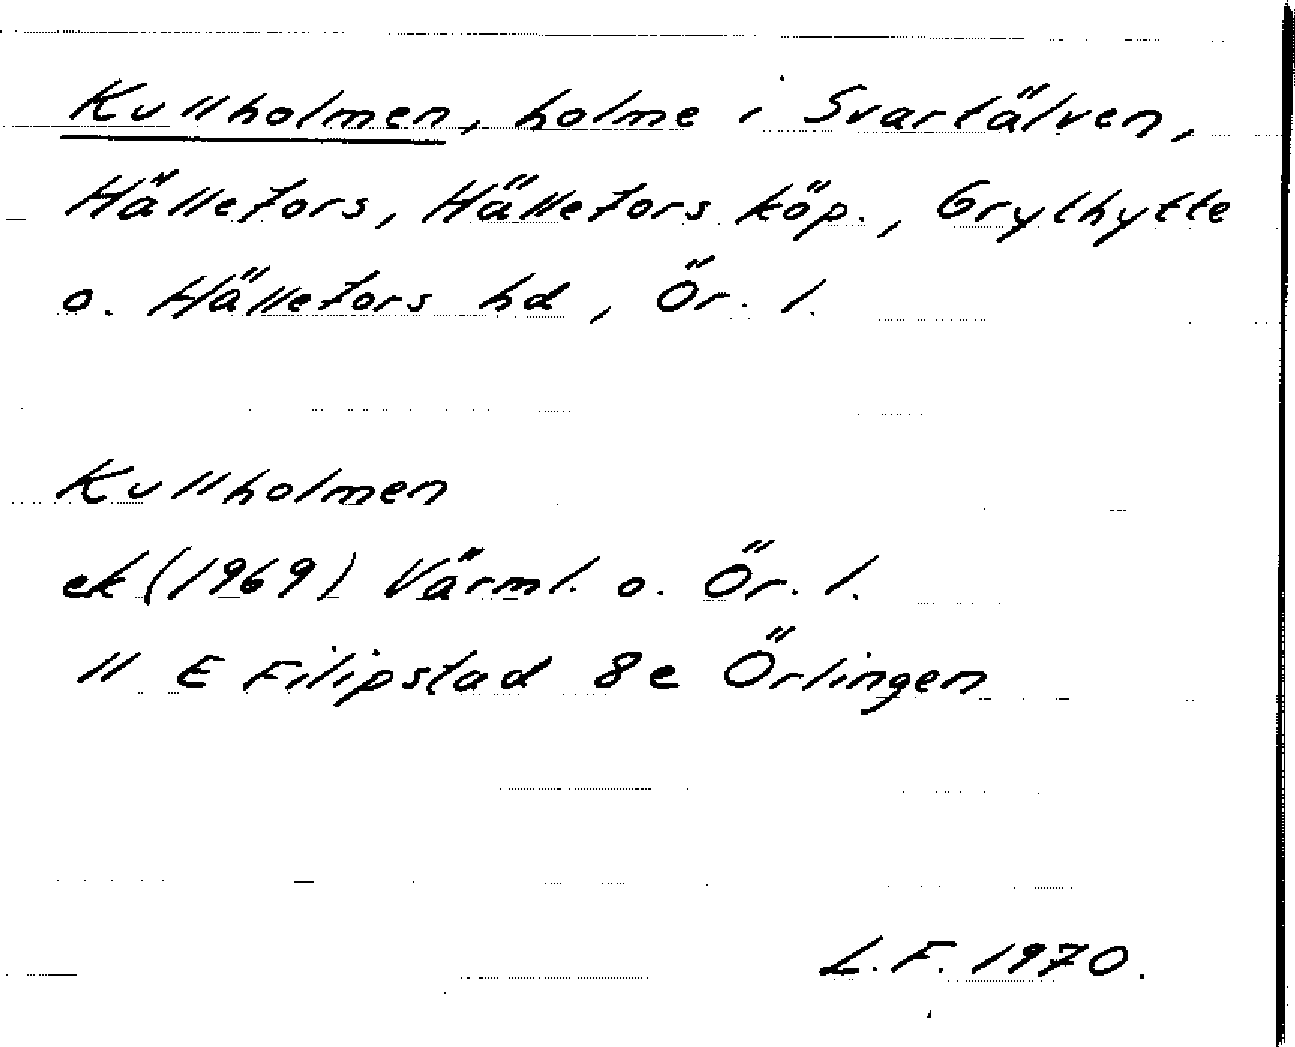 Kullholmen, holme i Svartälven,
Hällefors, Hällefors köp., Grythytte
o. Hällefors hd, Ör. l.
Kullholmen
ek (1969) Värml. o. Ör. l.
11 E Filipstad 8e Örlingen
L.F. 1970.